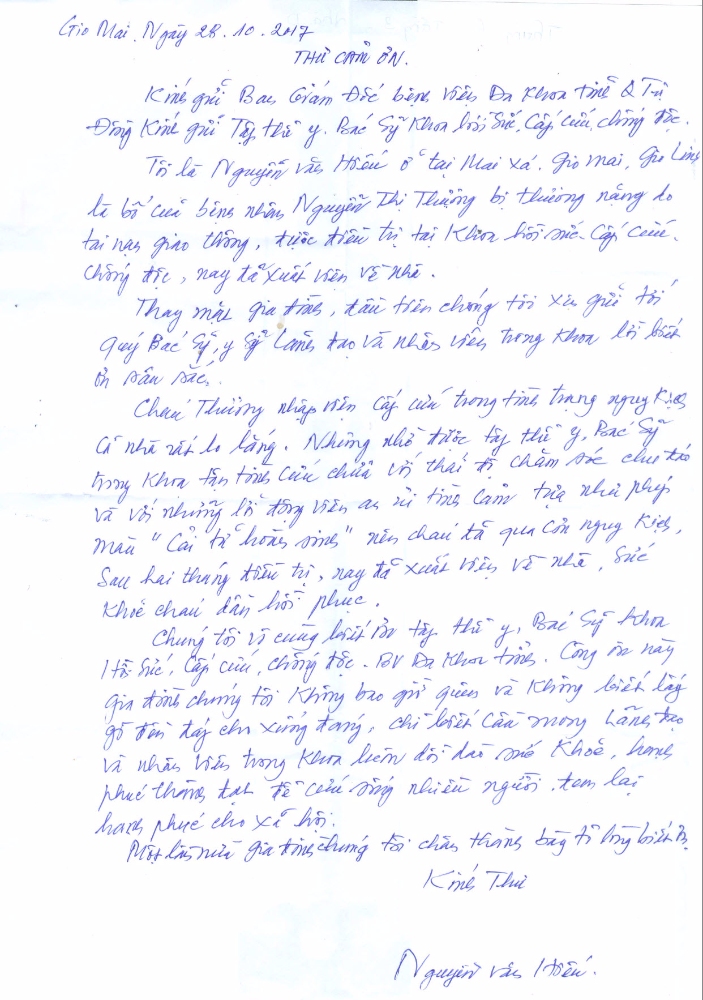 Gio Mai, Ngày 28.10.2017
THƯ CẢM ƠN.
Kính gửi Ban Giám Đốc bệnh viện Đa Khoa tỉnh Q Trị
Đồng Kính gửi Tập thể y. Bác Sỹ Khoa hồi sức, Cấp cứu, chống độc.
Tôi là Nguyễn Văn Hiếu ở tại Mai xá. Gio Mai, Gio Linh
là bố của bệnh nhân Nguyễn Thị Thưởng bị thương nặng do
tai nạn giao thông, được điều trị tại Khoa hồi sức. Cấp cứu.
chống độc, nay đã xuất viện về nhà.
Thay mặt gia đình, đầu tiên chúng tôi xin gửi tới
quý Bác Sỹ, y Sỹ Lãnh đạo và nhân viên trong Khoa lời biết
ơn sâu sắc.
Cháu Thưởng nhập viện cấp cứu trong tình trạng nguy Kịch
cả nhà rất lo lắng. Nhưng nhờ được tập thể y, Bác Sỹ
trong Khoa tận tình cứu chữa với thái độ chăm sóc chu đáo
và với những lời động viên an ủi tình cảm tựa như phép
màu "Cải tử hoàn sinh" nên cháu đã qua cơn nguy Kịch,
Sau hai tháng điều trị, nay đã xuất viện về nhà, Sức
Khỏe cháu dần hồi phục.
Chúng tôi vô cùng biết ơn tập thể y, Bác Sỹ Khoa
Hồi Sức, Cấp cứu, chống độc. BV Đa Khoa tỉnh. Công ơn này
gia đình chúng tôi Không bao giờ quên và Không biết lấy
gì đền đáp cho xứng đáng, chỉ biết Cầu mong Lãnh đạo
và nhân viên trong Khoa luôn dồi dào sức Khỏe, hạnh
phúc thành đạt để cứu sống nhiều người, đem lại
hạnh phúc cho xã hội.
Một lần nữa gia đình chúng tôi chân thành bày tỏ lòng biết ơn
Kính Thư
Nguyễn Văn Hiếu.